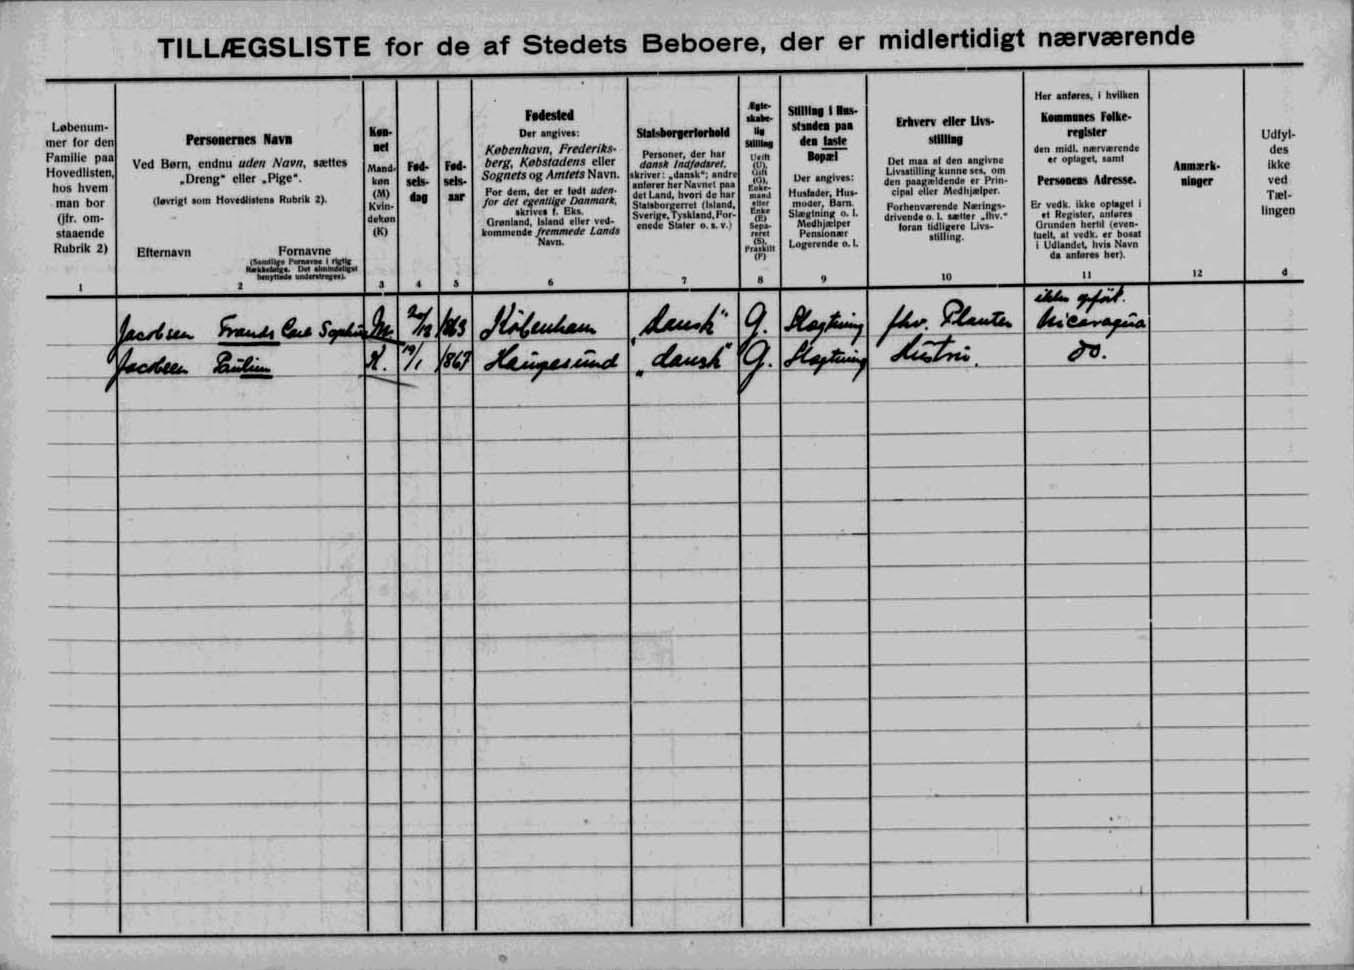 TILLÆGSLISTE for de af Stedets Beboere, der er midlertidigt nærværende
Løbenum-
mer for den
Familie paa
Hovedlisten,
hos hvem
man bor
(jfr. om-
staaende
Rubrik 2)
1
Personernes Navn
Ved Børn, endnu uden Navn, sættes
„Dreng“ eller „Pige“.
(Iøvrigt som Hovedlistens Rubrik 2).
Efternavn Fornavne
(Samtlige Fornavne i rigtig
Rækkefølge. Det almindeligst
benyttede understreges).
2
Køn-
net
Mand-
køn
(M)
Kvin-
dekøn
(K)
3
Fød-
sels-
dag
4
Fød-
sels-
aar
5
Fødested
Der angives:
København, Frederiks-
berg, Købstadens eller
Sognets og Amtets Navn.
For dem, der er født uden-
for det egentlige Danmark,
skrives f. Eks.
Grønland, Island eller ved-
kommende fremmede Lands
Navn.
6
Statsborgerforhold
Personer, der har
dansk Indfødsret,
skriver: „dansk“; andre
anfører her Navnet paa
det Land, hvori de har
Statsborgerret (Island,
Sverige, Tyskland, For-
enede Stater o. s. v.)
7
Ægte-
skabe-
lig
Stilling
Ugift
(U),
Gift
(G),
Enke-
mand
eller
Enke
(E)
Sepa-
reret
(S),
Fraskilt
(F)
8
Stilling i Hus-
standen paa
den faste
Bopæl
Der angives:
Husfader, Hus-
moder, Barn,
Slægtning o. l.
Medhjælper
Pensionær
Logerende o. l.
9
Erhverv eller Livs-
stilling
Det maa af den angivne
Livsstilling kunne ses, om
den paagældende er Prin-
cipal eller Medhjælper.
Forhenværende Nærings-
drivende o. l. sætter „fhv.“
foran tidligere Livs-
stilling.
10
Her anføres, i hvilken
Kommunes Folke-
register
den midl. nærværende
er optaget, samt
Personens Adresse.
Er vedk. ikke optaget i
et Register, anføres
Grunden hertil (even-
tuelt, at vedk. er bosat
i Udlandet, hvis Navn
da anføres her).
11
Anmærk-
ninger
12
Udfyl-
des
ikke
ved
Tæl-
lingen
d
ikke opført.
Jacobsen Frands Carl Sophus M. /12 1863 København „Dansk“ G. Slægtning fhv. Planter Nicaragua
Jacobsen Pauline K. 19/1 1867 Haugesund „dansk“ G. Slægtning Hustru. do.